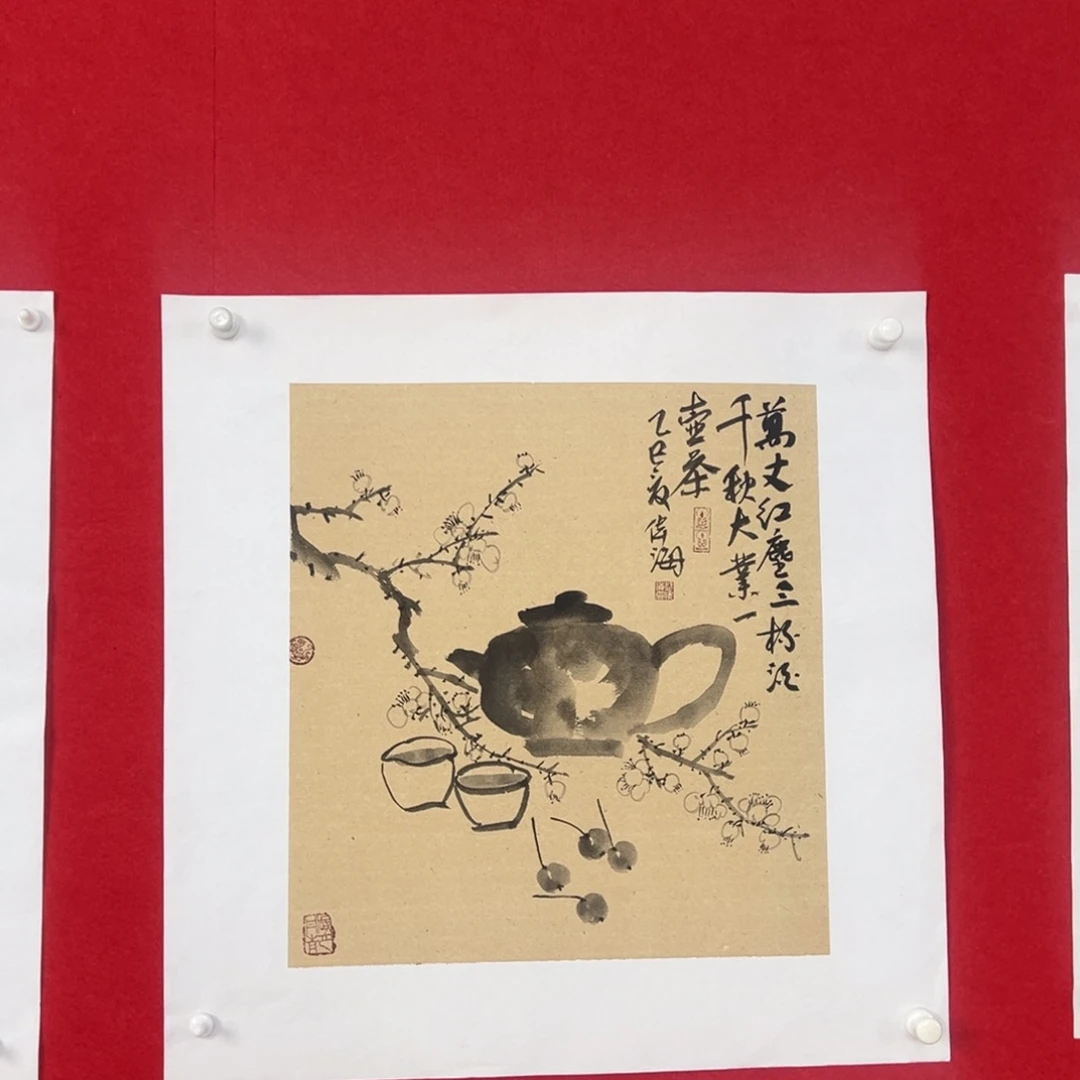 萬丈紅塵三杯酒
千秋大業一
壺茶
乙巳夏偉海